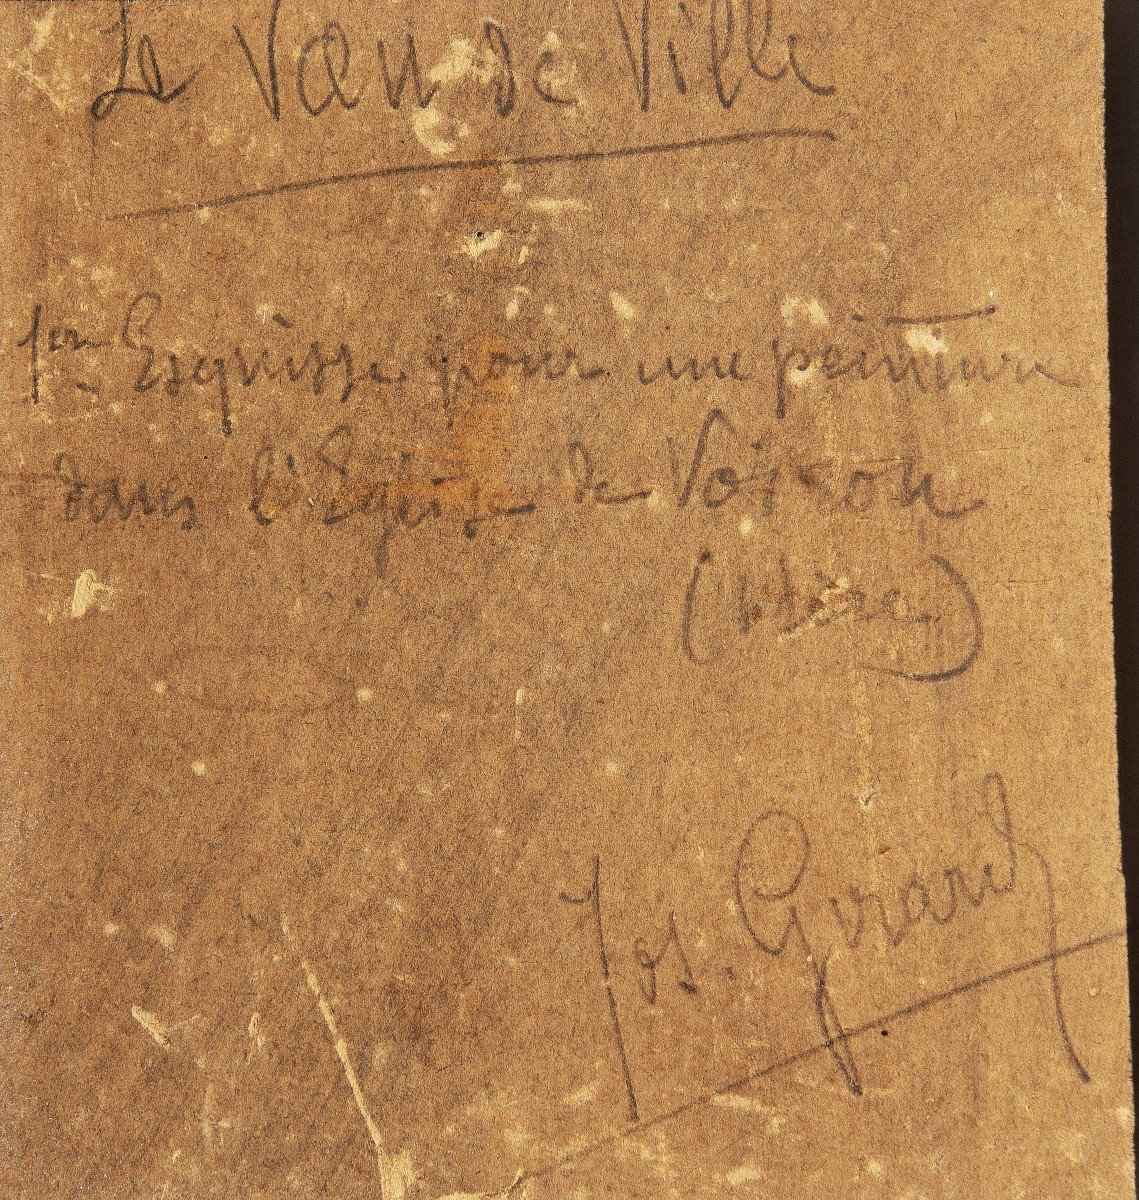 Le Vœu de Ville
1er Esquisse pour une peinture
dans l'Eglise de Voiron
(Isère)
Jos. Girard